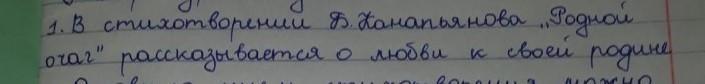 1. В стихотворении Б. Канапьянова „Родной
очаг" рассказывается о любви к своей родине